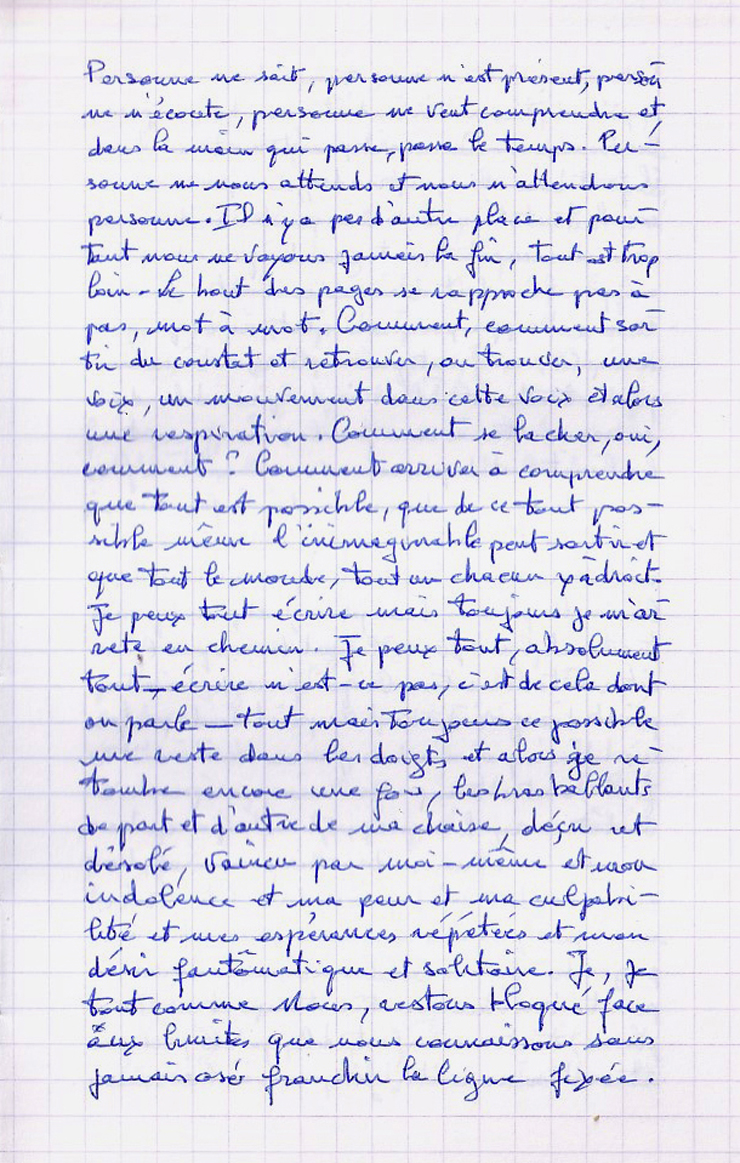 Personne ne sait, personne n'est présent, person
ne n'écoute, personne ne veut comprendre et
dans la main qui passe, passe le temps. Per-
sonne ne nous attends et nous n'attendons
personne. Il n'y a pas d'autre place et pour
tant nous ne voyons jamais la fin, tout est trop
loin - Le bout des pages se rapproche pas à
pas, mot à mot. Comment, comment sor
tir du constat et retrouver, ou trouver, une
voix, un mouvement dans cette voix et alors
une respiration. Comment se lacher, oui,
comment ? Comment arriver à comprendre
que tout est possible, que de ce tout pos-
sible même l'inimaginable peut sortir et
que tout le monde, tout un chacun y à droit.
Je peux tout écrire mais toujours je m'ar
rete en chemin. Je peux tout, absolument
tout, - écrire n'est-ce pas, c'est de cela dont
on parle - tout mais toujours ce possible
me reste dans les doigts et alors je re
tombe encore une fois, les bras ballants
de part et d'autre de ma chaise, déçu et
désolé, vaincu par moi-même et mon
indolence et ma peur et ma culpabi-
lité et mes espérances répétées et mon
désir fantômatique et solitaire. Je, je
tout comme Nous, restons bloqué face
aux limites que nous connaissons sans
jamais osé franchir la ligne fixée.